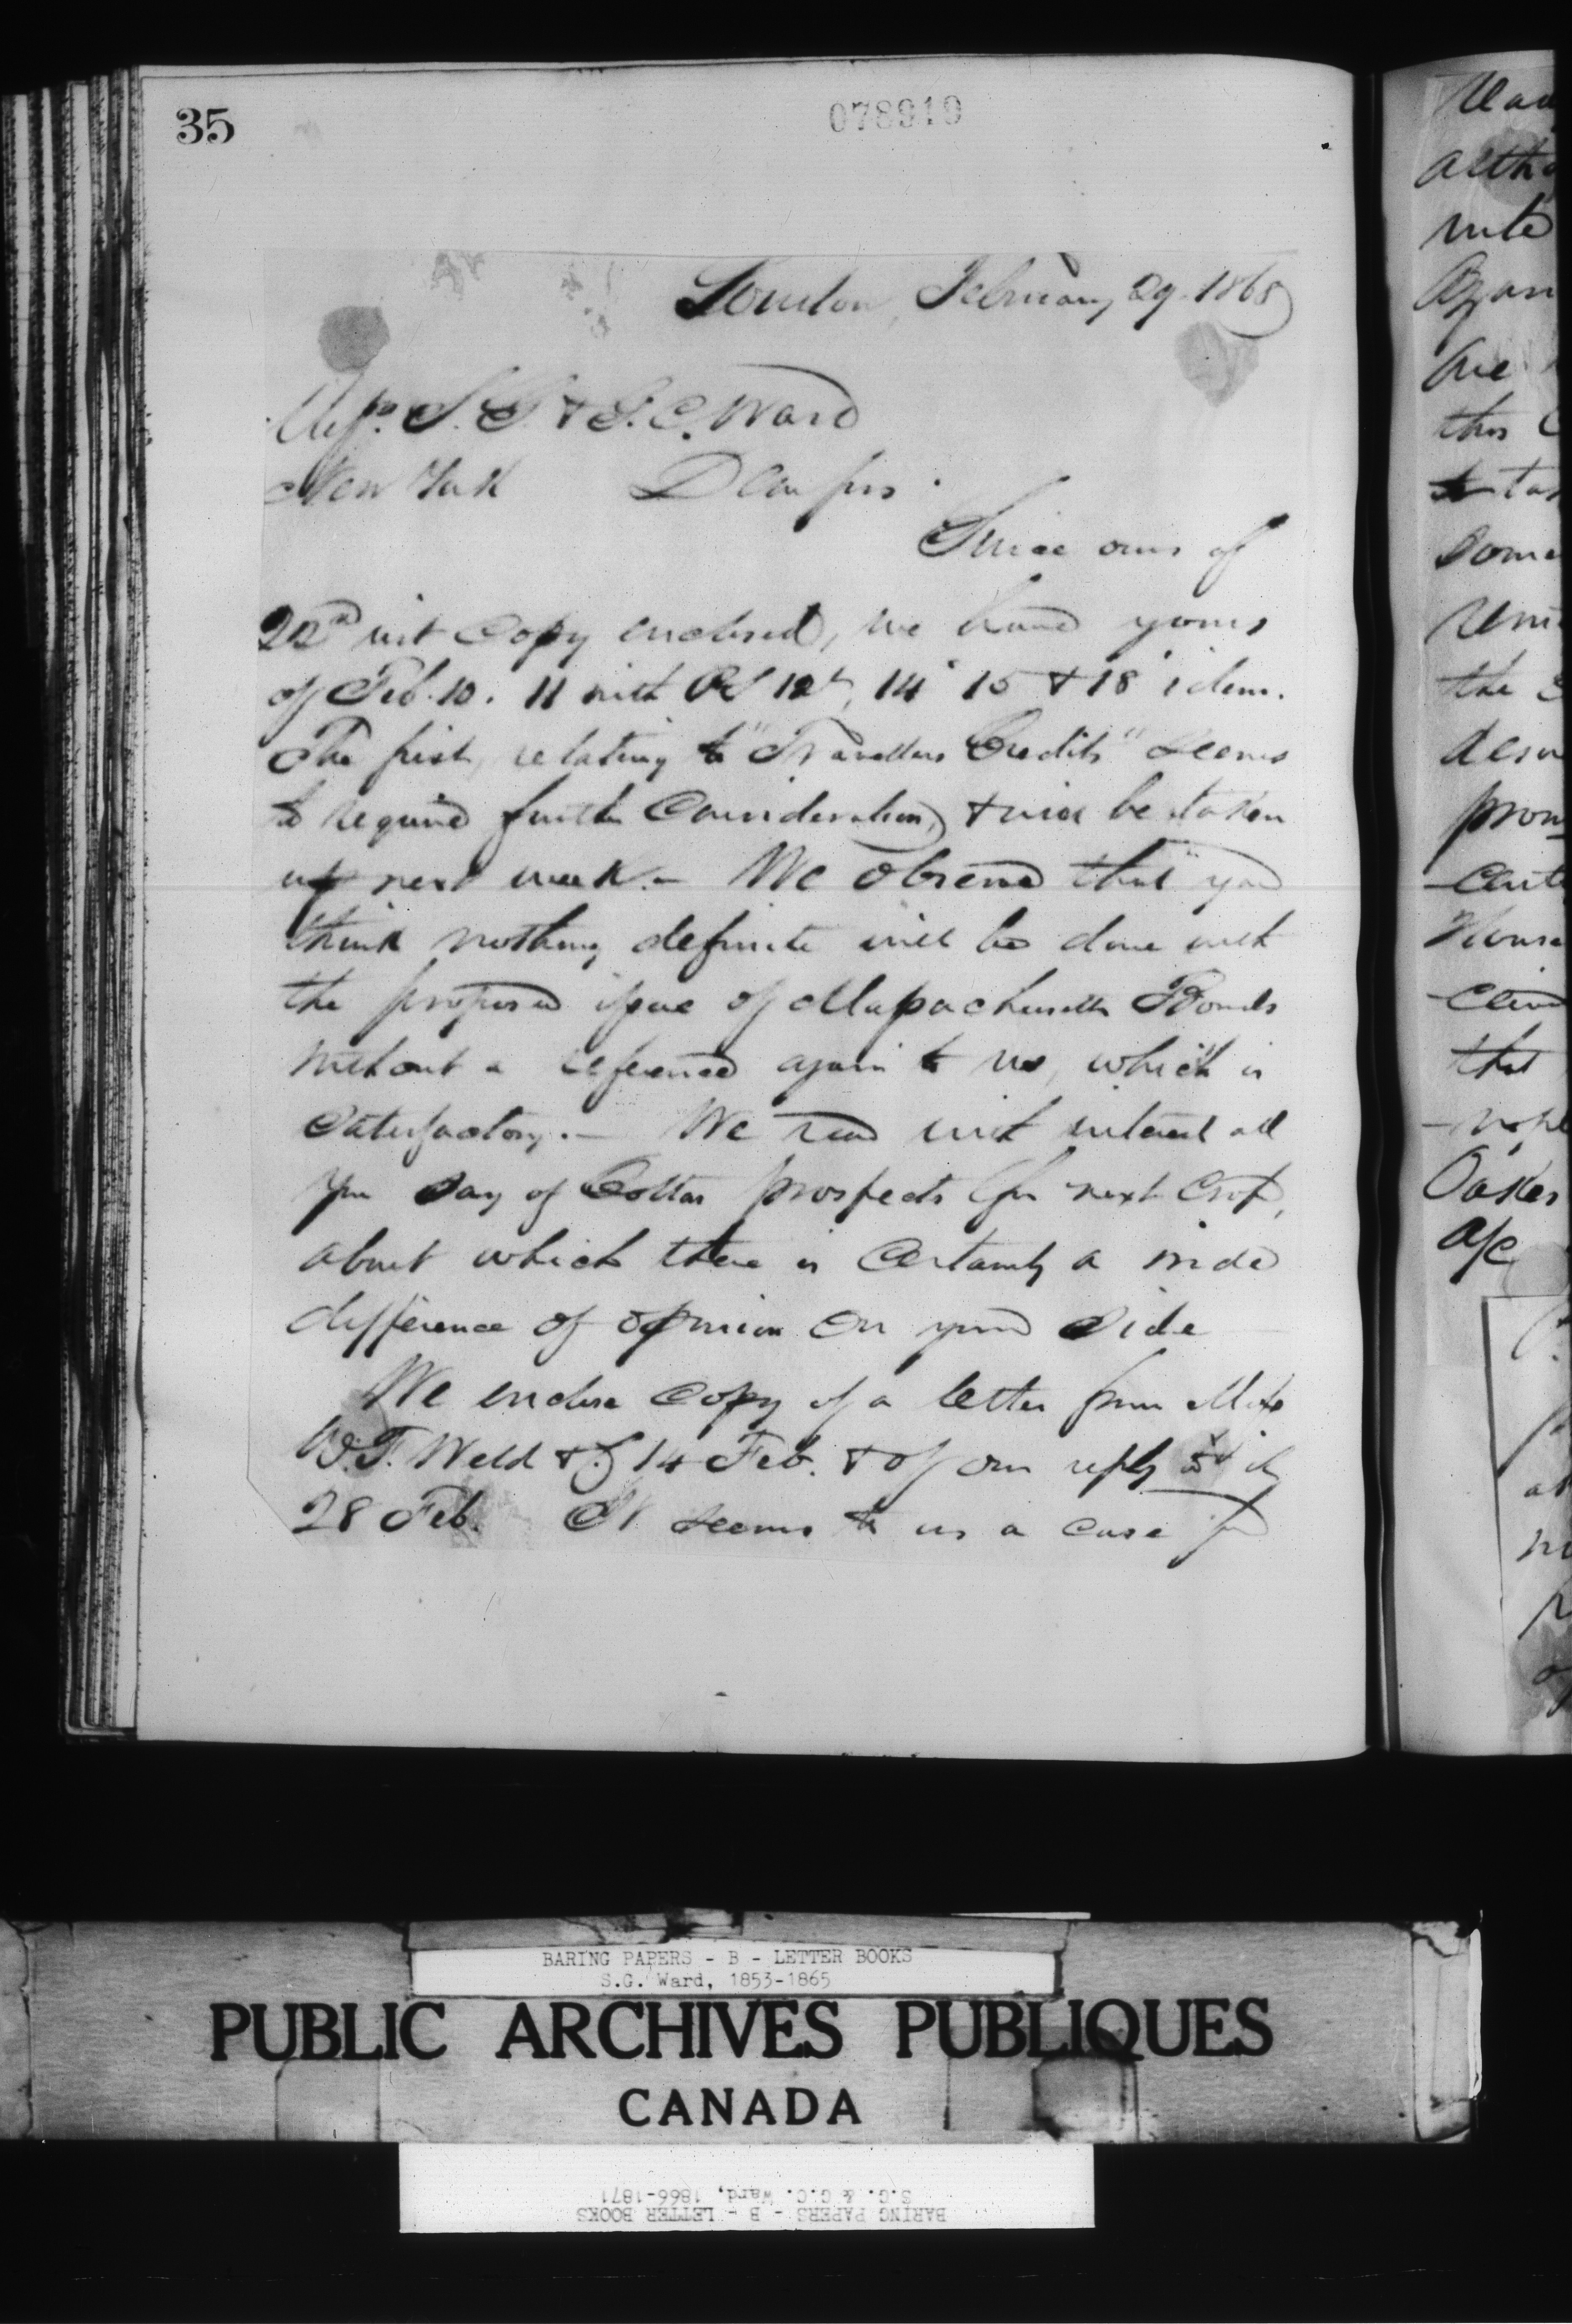 35
078919
London, February 29. 1868
Messrs. S. G. & G. C. Ward
New York Dear Sirs.
Since ours of
22d inst Copy enclosed, we have yours
of Feb. 10. 11 with PS 12t, 14 15 & 18 idem.
The first, relating to "Travellers Credits" seems
to require further Consideration, & will be taken
up next week. — We observe that you
think nothing definite will be done with
the proposed issue of Massachusetts Bonds
without a reference again to us, which is
Satisfactory. — We read with interest all
you say of Cotton prospects for next Crop,
about which there is certainly a wide
difference of opinion on your side
We enclose Copy of a letter from Messrs
W. F. Weld & Co 14 Feb. & of our reply to it
28 Feb. It seems to us a case for
this
some
the
that
Oakes
a/c
BARING PAPERS - B - LETTER BOOKS
S.G. Ward, 1853-1865
PUBLIC ARCHIVES PUBLIQUES
CANADA
BARING PAPERS - B - LETTER BOOKS
S.G. & G.C. Ward, 1866-1871